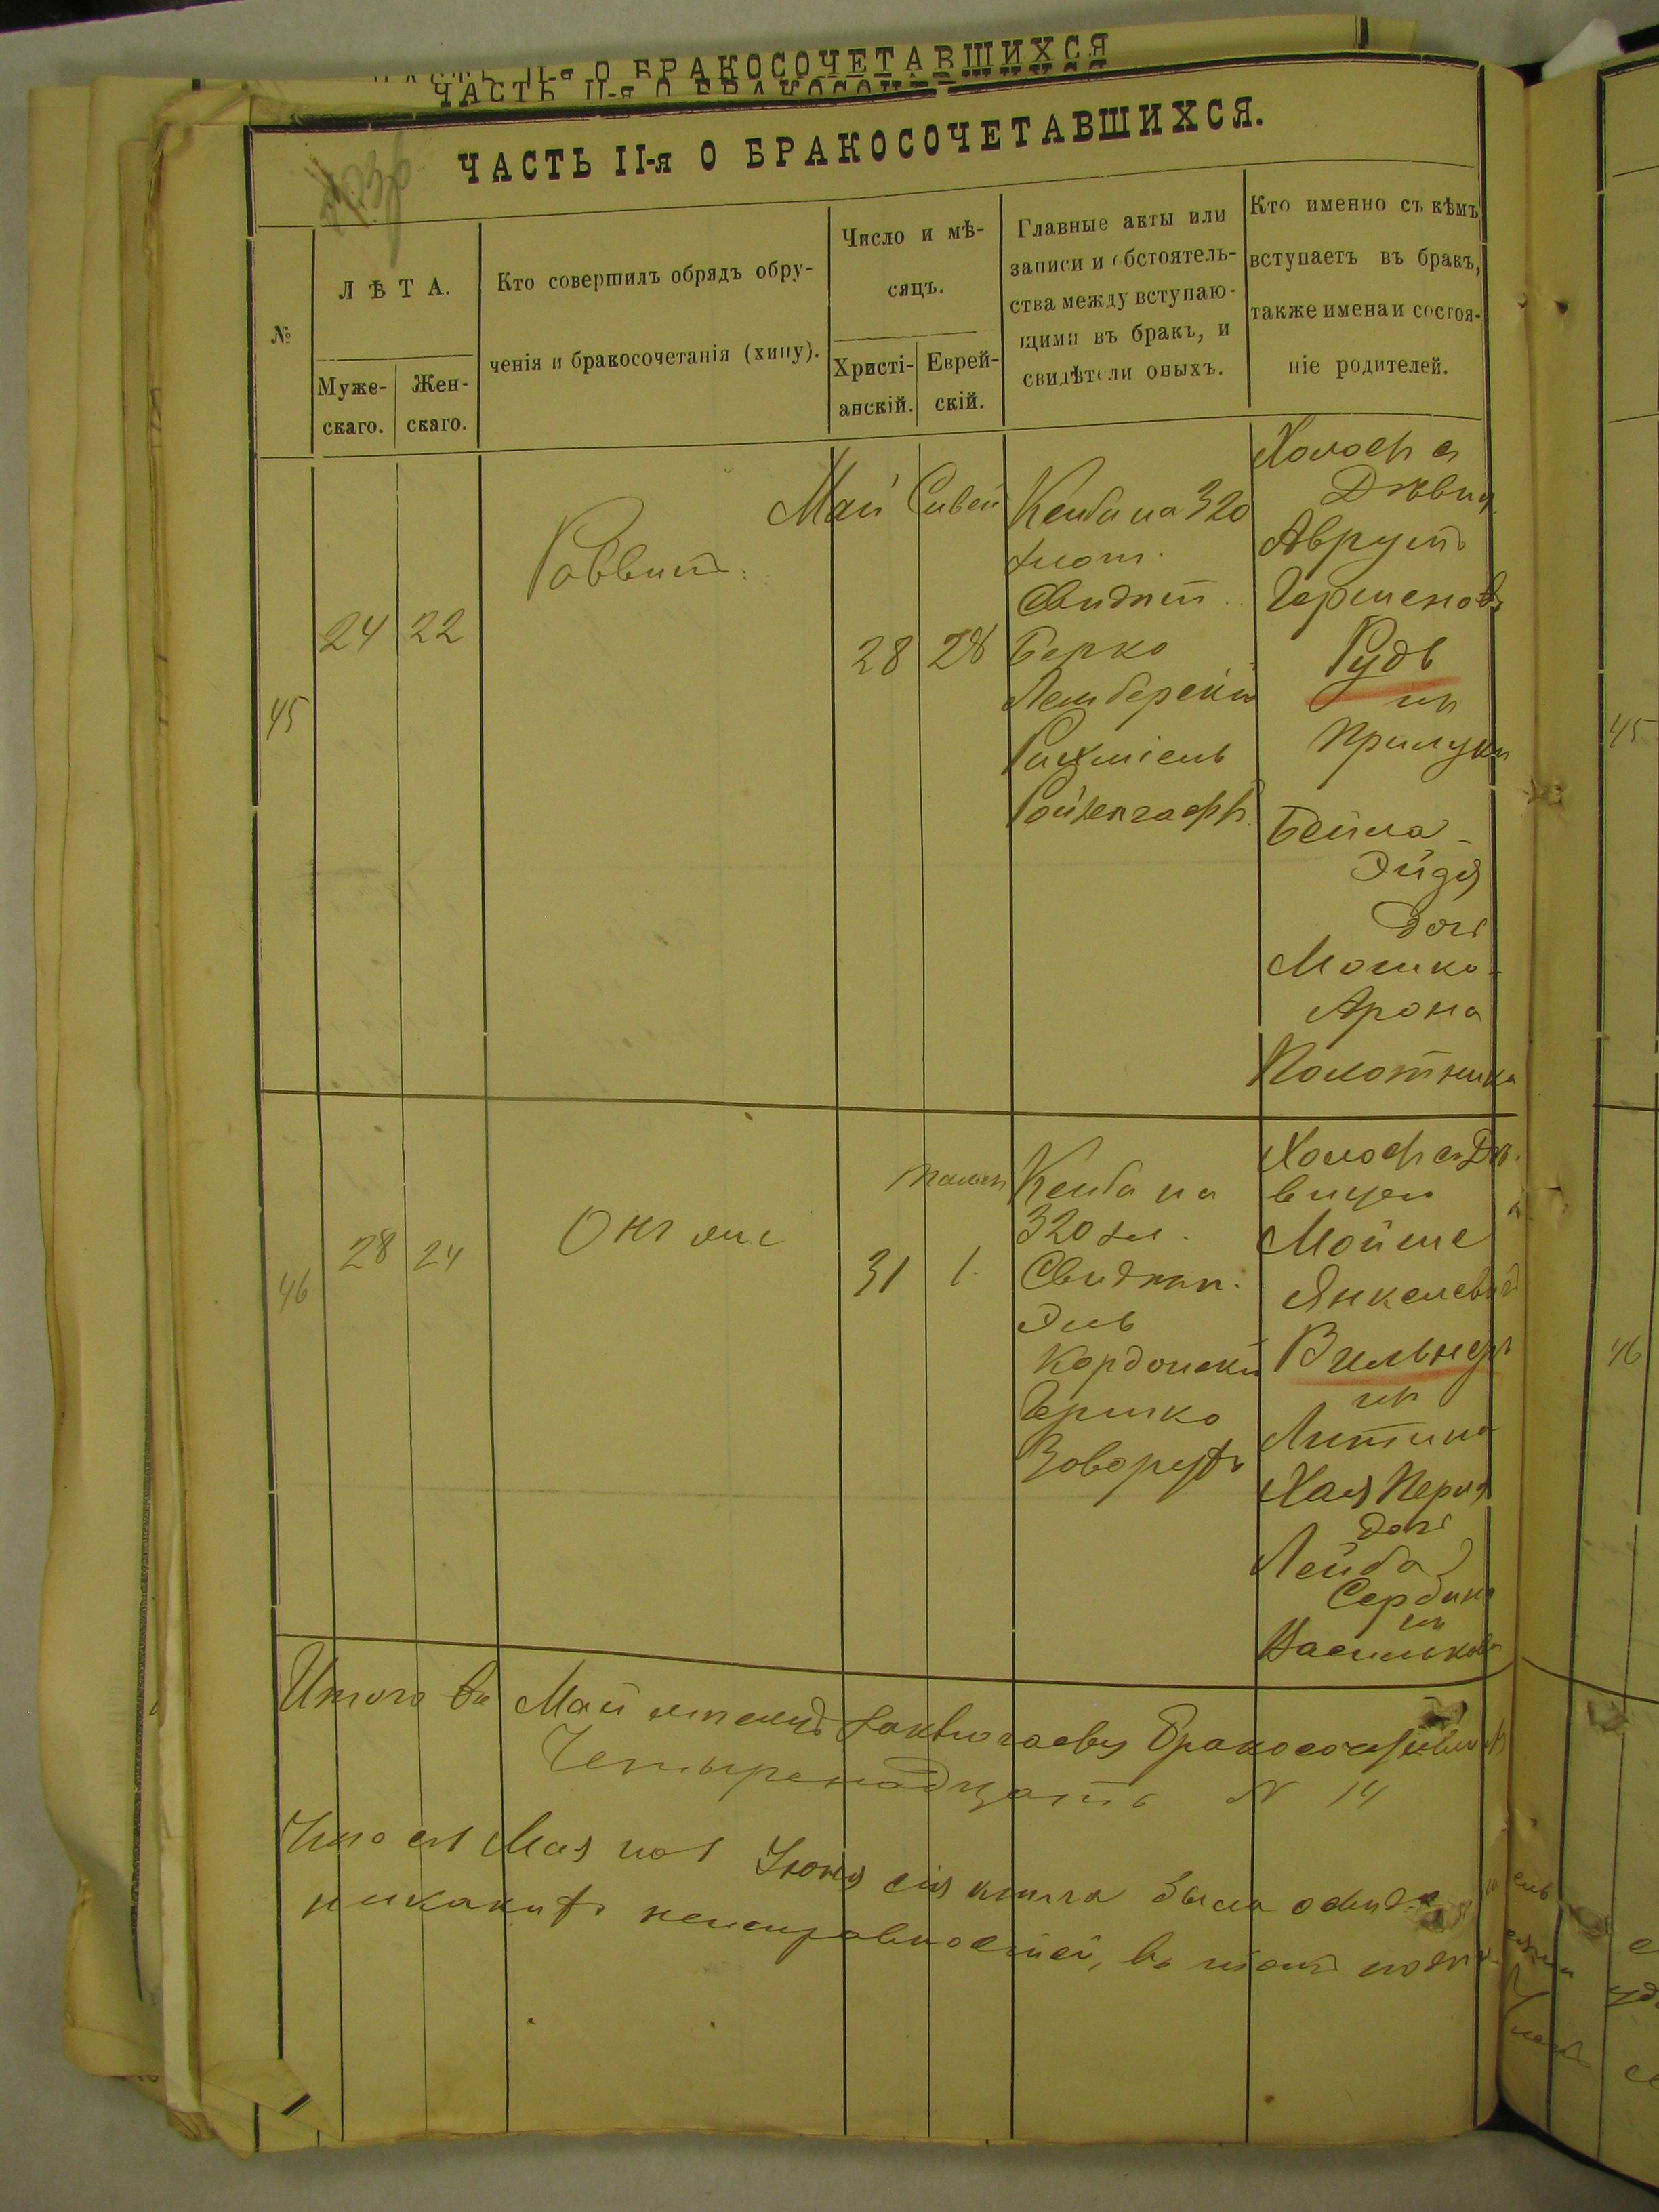 ЧАСТЬ II-я О БРАКОСОЧЕТАВШИХСЯ
ЧАСТЬ II-я О БРАКОСОЧЕТАВШИХСЯ.
№
ЛѢТА.
Муже-
скаго.
Жен-
скаго.
Кто совершилъ обрядъ обру-
ченія и бракосочетанія (хипу).
Число и мѣ-
сяцъ.
Христі-
анскій.
Еврей-
скій.
Главные акты или
записи и обстоятель-
ства между вступаю-
щими въ бракъ, и
свидѣтели оныхъ.
Кто именно съ кѣмъ
вступаетъ въ бракъ,
также имена и состоя-
ніе родителей.
45
24
22
Раввинъ
Май
28
Сивен
28
Кенба на 320
злот.
Свидѣт.
Берко
Лембергскій
Рахміель
Холос. съ
Дѣвиц.
Аврумъ
Гершеновъ
Рудь
изъ
Прилуки
Бейла
Эйдя
дочь
Мошко-
Арона
Колотника
46
28
24
Онъ же
31
1
Кенба на
320 зл.
Свидѣт.
Эль
Кордонскій
Гершко
Холос. съ Дѣ-
вицею
Мойше
Янкелевъ
Вильнеръ
изъ
Литина
Хая Перля
дочь
Лейба
изъ
Василькова
Итого въ Май мѣсяцѣ
Четыренадцать N 14
Что съ 1 Мая по 1 Іюня сія книга была
никакихъ неисправностей, въ томъ
45
46